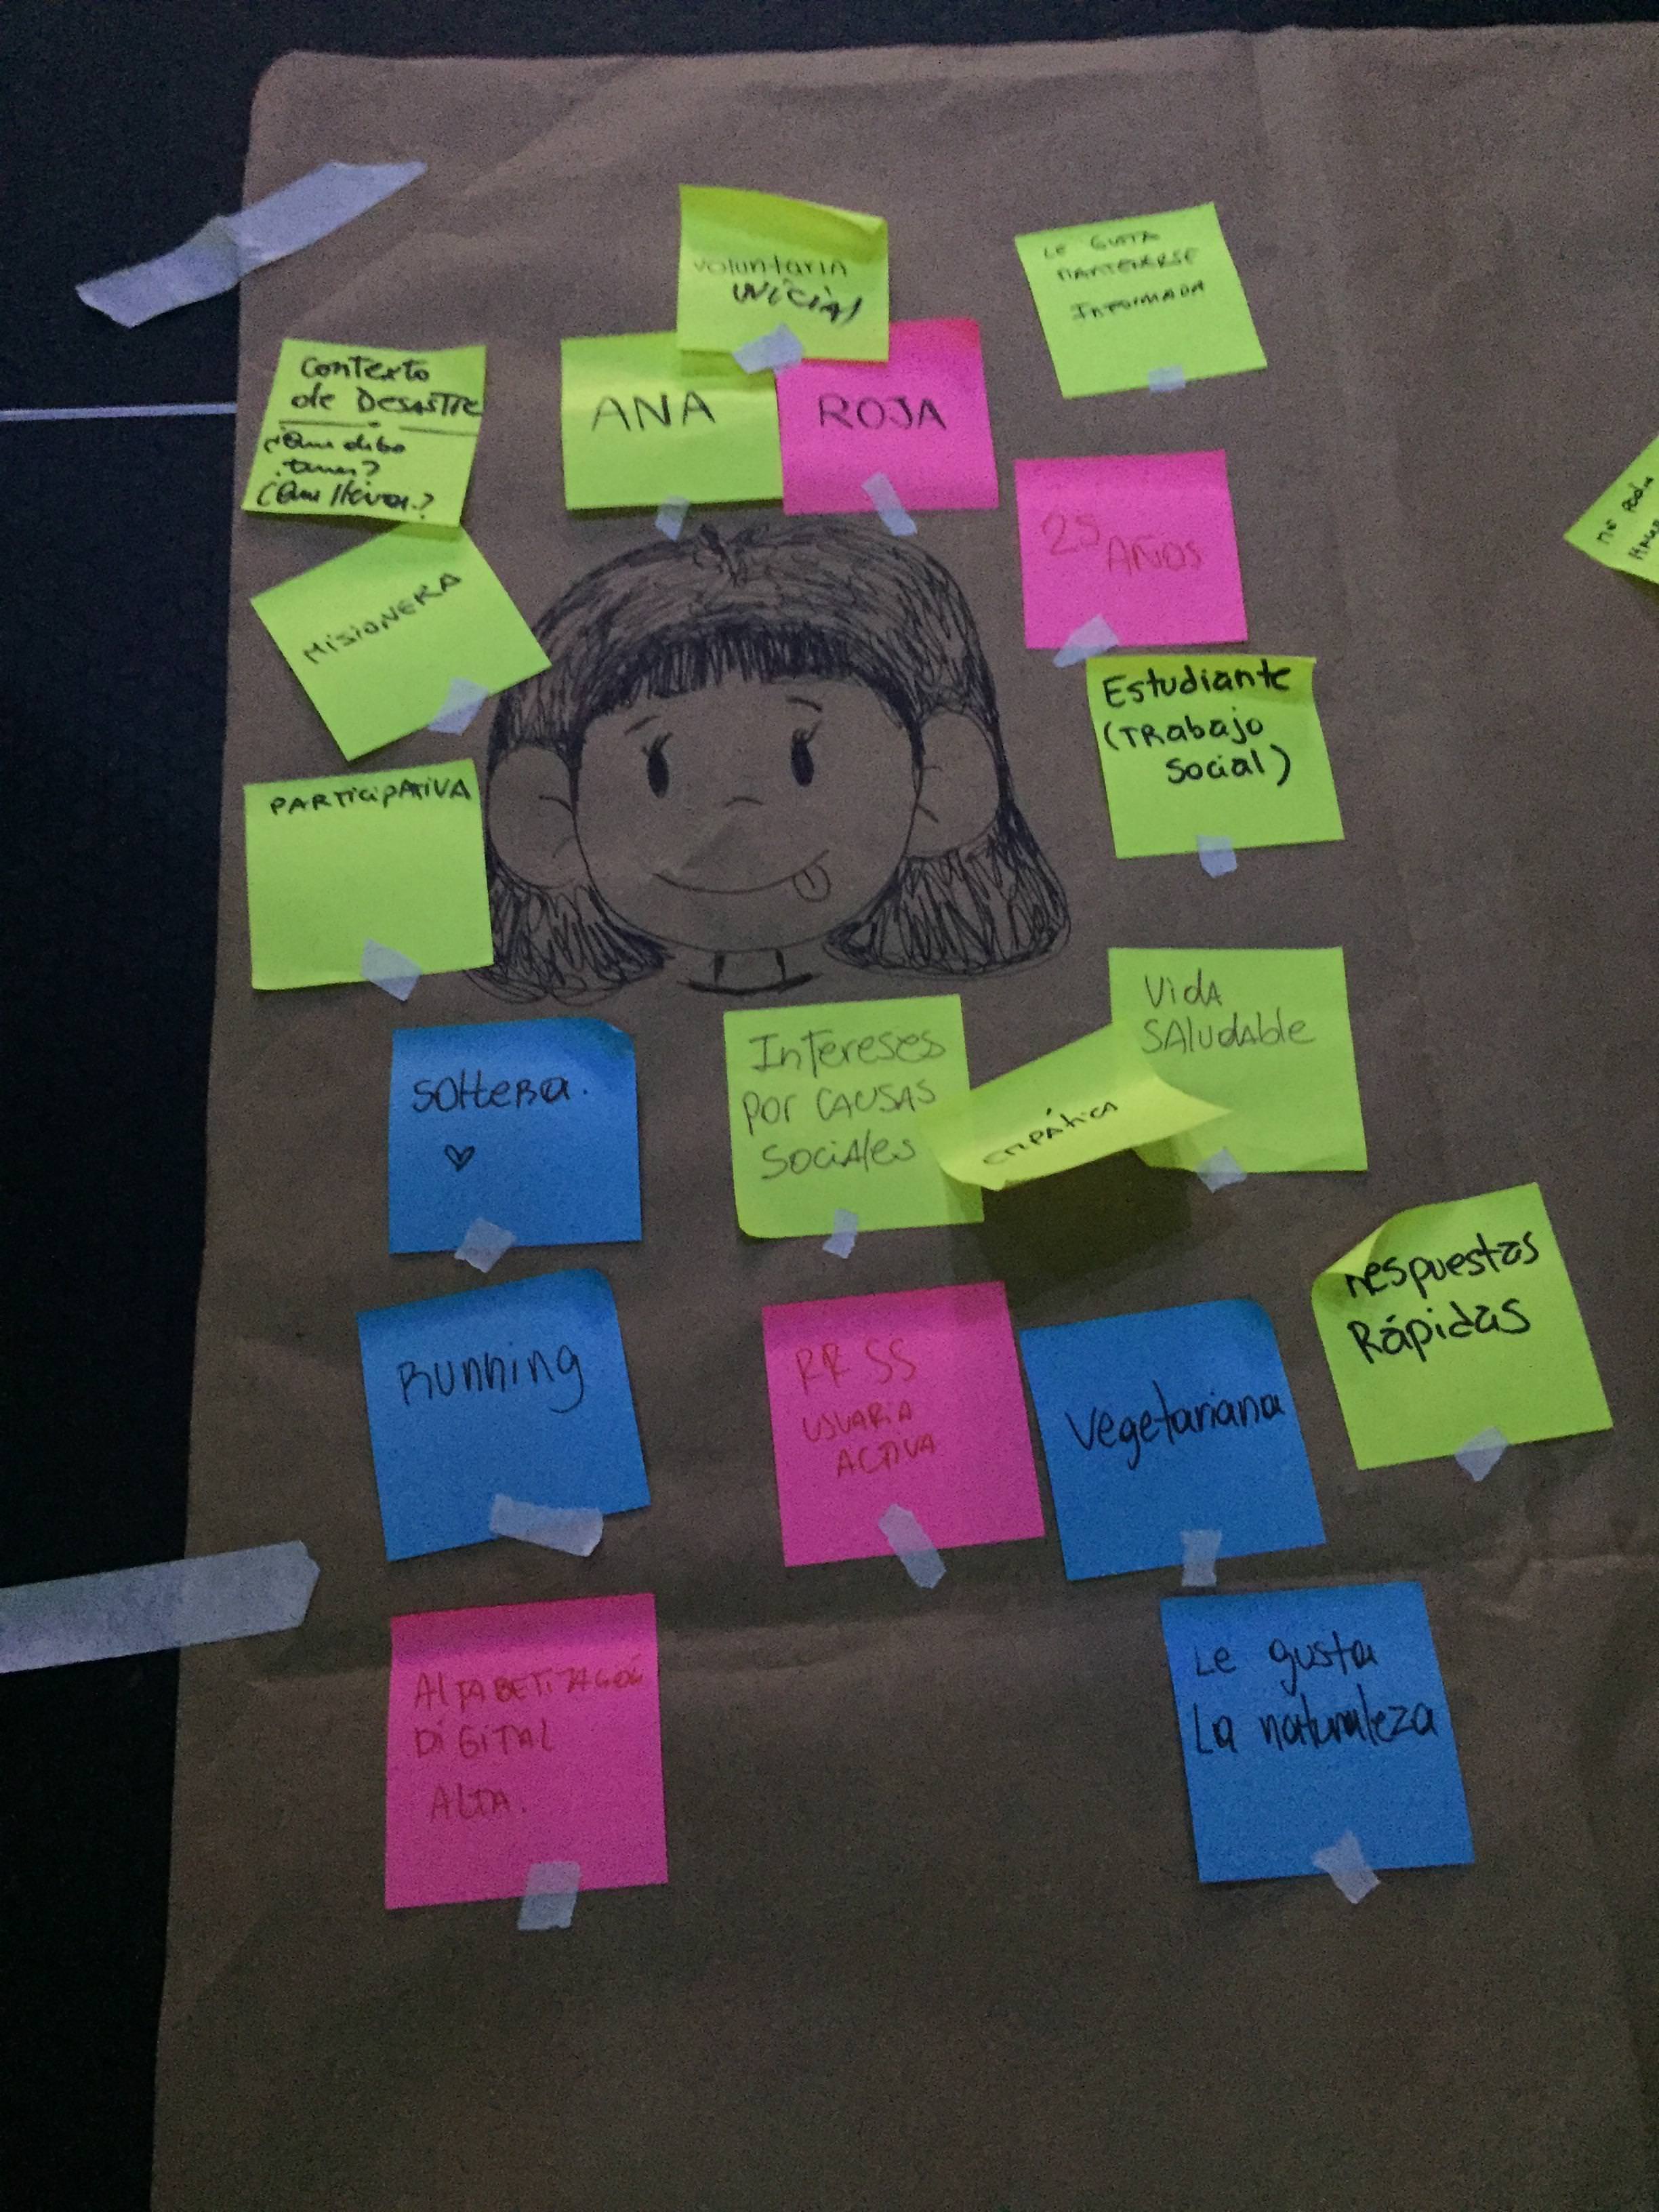 voluntaria
inicial
LE GUSTA
MANTENERSE
INFORMADA
Contexto
de DESASTRE
¿Que debo
¿Que llevar?
ANA
ROJA
25
AÑOS
MISIONERA
Estudiante
(TRabajo
social)
PARTICIPATIVA
Vida
SAludAble
Intereses
por CAUSAS
SociAles
empática
solteRa.
Respuestas
Rápidas
Running
RRSS
USUARIA
ACTIVA
vegetariana
ALFABETIZACIÓN
DIGITAL
ALTA.
Le gusta
La naturaleza